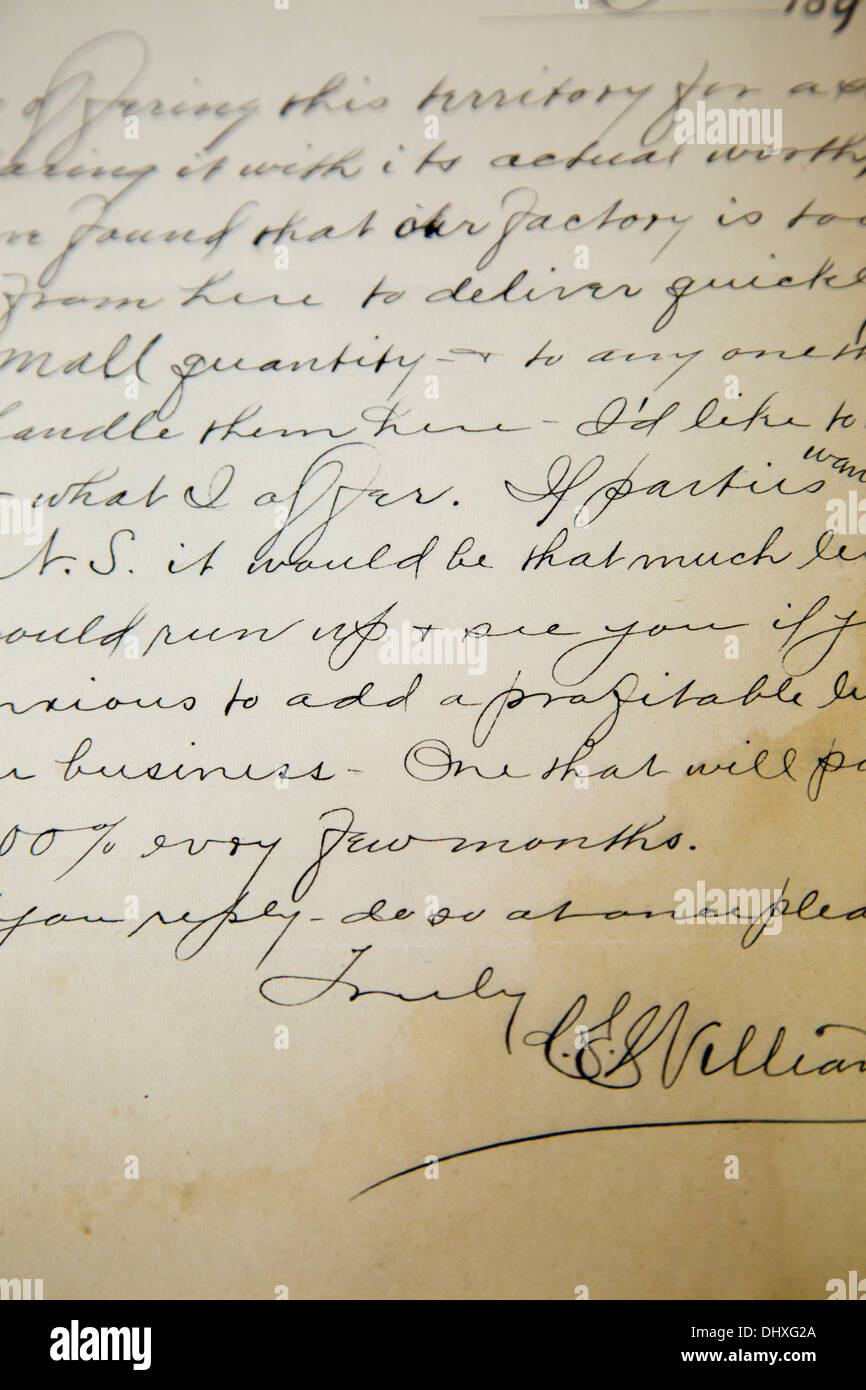 189
offering this territory for a
aring it with its actual worth,
ve found that our factory is too
from here to deliver quickl
mall quantity - + to any one th
handle them here - I'd like to
- what I offer. If parties wan
N. S. it would be that much
ould run up + see you if y
nxious to add a profitable li
r business - One that will pa
00% evry few months.
you reply - do so at once plea
Truly
C. E. Willian
alamy
Image ID: DHXG2A
www.alamy.com